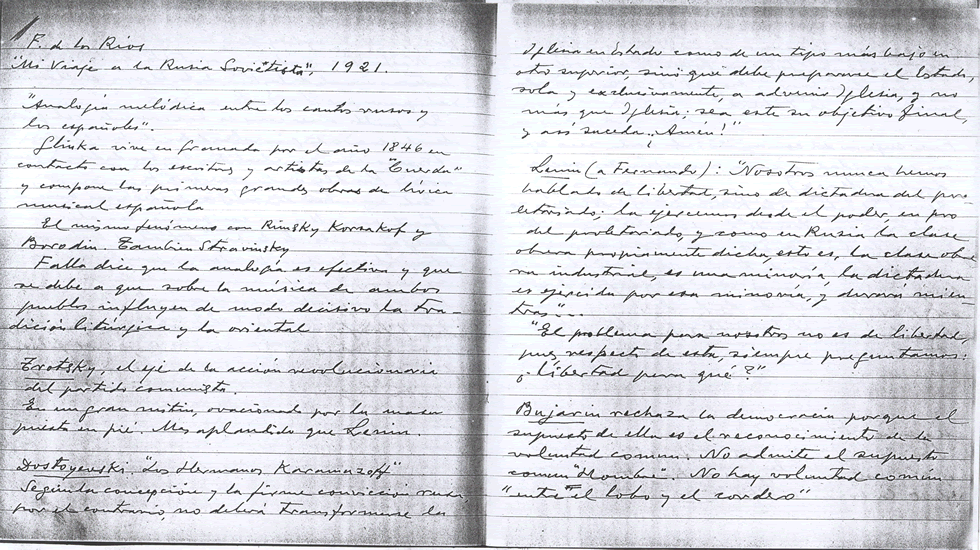 F. de los Ríos
"Mi Viaje a la Rusia Sovietista", 1921.
"Analogía melódica entre los cantos rusos y
los españoles".
Glinka vive en Granada por el año 1846 en
contacto con los escritores y artistas de la "Cuerda"
y compone las primeras grandes obras de lírica
musical española
El mismo fenómeno con Rimsky Korsakof y
Borodin. Tambien Stravinsky
Falla dice que la analogía es efectiva y que
se debe a que sobre la música de ambos
pueblos influyen de modo decisivo la tra-
dición litúrgica y la oriental
Trotsky, el eje de la acción revolucionaria
del partido comunista.
En un gran mitin, ovacionado por la masa
puesta en pié. Mas aplaudido que Lenin.
Dostoyevski. "Los Hermanos Karamazoff"
Según la concepción y la firme convicción rusa,
por el contrario, no deberá transformarse la
Iglesia en Estado como de un tipo más bajo en
otro superior, sino que debe prepararse el Estado
sola y exclusivamente, a advenir Iglesia, y no
más que Iglesia; sea este su objetivo final,
y así suceda. Amén!"
Lenin (a Fernando): "Nosotros nunca hemos
hablado de libertad, sino de dictadura del pro
letariado; la ejercemos desde el poder, en pro
del proletariado, y como en Rusia la clase
obrera propiamente dicha, esto es, la clase obre
ra industrial, es una minoría, la dictadura
es ejercida por esa minoría, y durará mien
tras....
"El problema para nosotros no es de libertad,
pues respecto de esta, siempre preguntamos:
¿libertad para qué?"
Bujarin rechaza la democracia porque el
supuesto de ella es el reconocimiento de la
voluntad comun. No admite el supuesto
comun "Hombre". No hay voluntad común
"entre el lobo y el cordero"